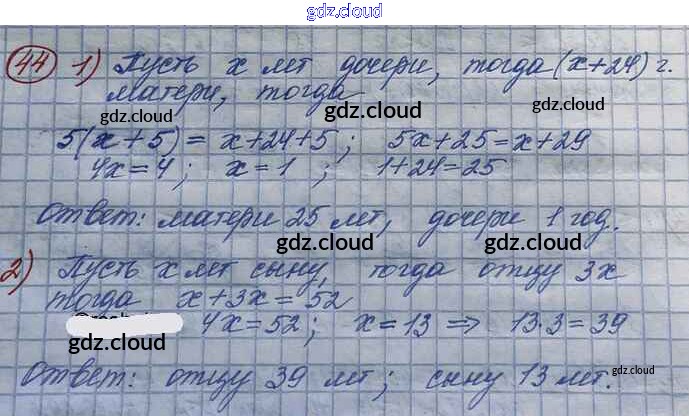 gdz.cloud
44 1) Пусть x лет дочери, тогда (x+24) г.
матери, тогда
gdz.cloud gdz.cloud gdz.cloud
5(x+5) = x+24+5; 5x+25=x+29
4x=4; x=1; 1+24=25
gdz.cloud gdz.cloud
Ответ: матери 25 лет, дочери 1 год.
gdz.cloud gdz.cloud
2) Пусть x лет сыну, тогда отцу 3x
тогда x+3x=52
gdz.cloud gdz.cloud
4x=52; x=13 ⇒ 13·3=39
gdz.cloud gdz.cloud
Ответ: отцу 39 лет; сыну 13 лет.